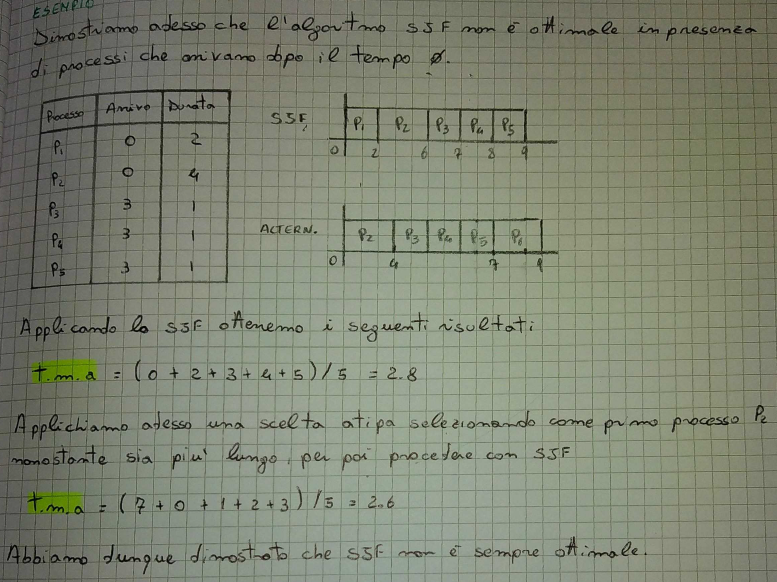 ESEMPIO
Dimostriamo adesso che l'algoritmo SJF non è ottimale in presenza
di processi che arrivano dopo il tempo Ø.
Processo Arrivo Durata
P1 0 2
P2 0 4
P3 3 1
P4 3 1
P5 3 1
SJF
P1 P2 P3 P4 P5
0 2 6 7 8 9
ALTERN.
P2 P3 P4 P5 P1
0 4 7 9
Applicando lo SJF otterremo i seguenti risultati
t.m.a = (0 + 2 + 3 + 4 + 5) / 5 = 2.8
Applichiamo adesso una scelta atipa selezionando come primo processo P2
nonostante sia piu' lungo, per poi procedere con SJF
t.m.a = (7 + 0 + 1 + 2 + 3) / 5 = 2.6
Abbiamo dunque dimostrato che SJF non è sempre ottimale.